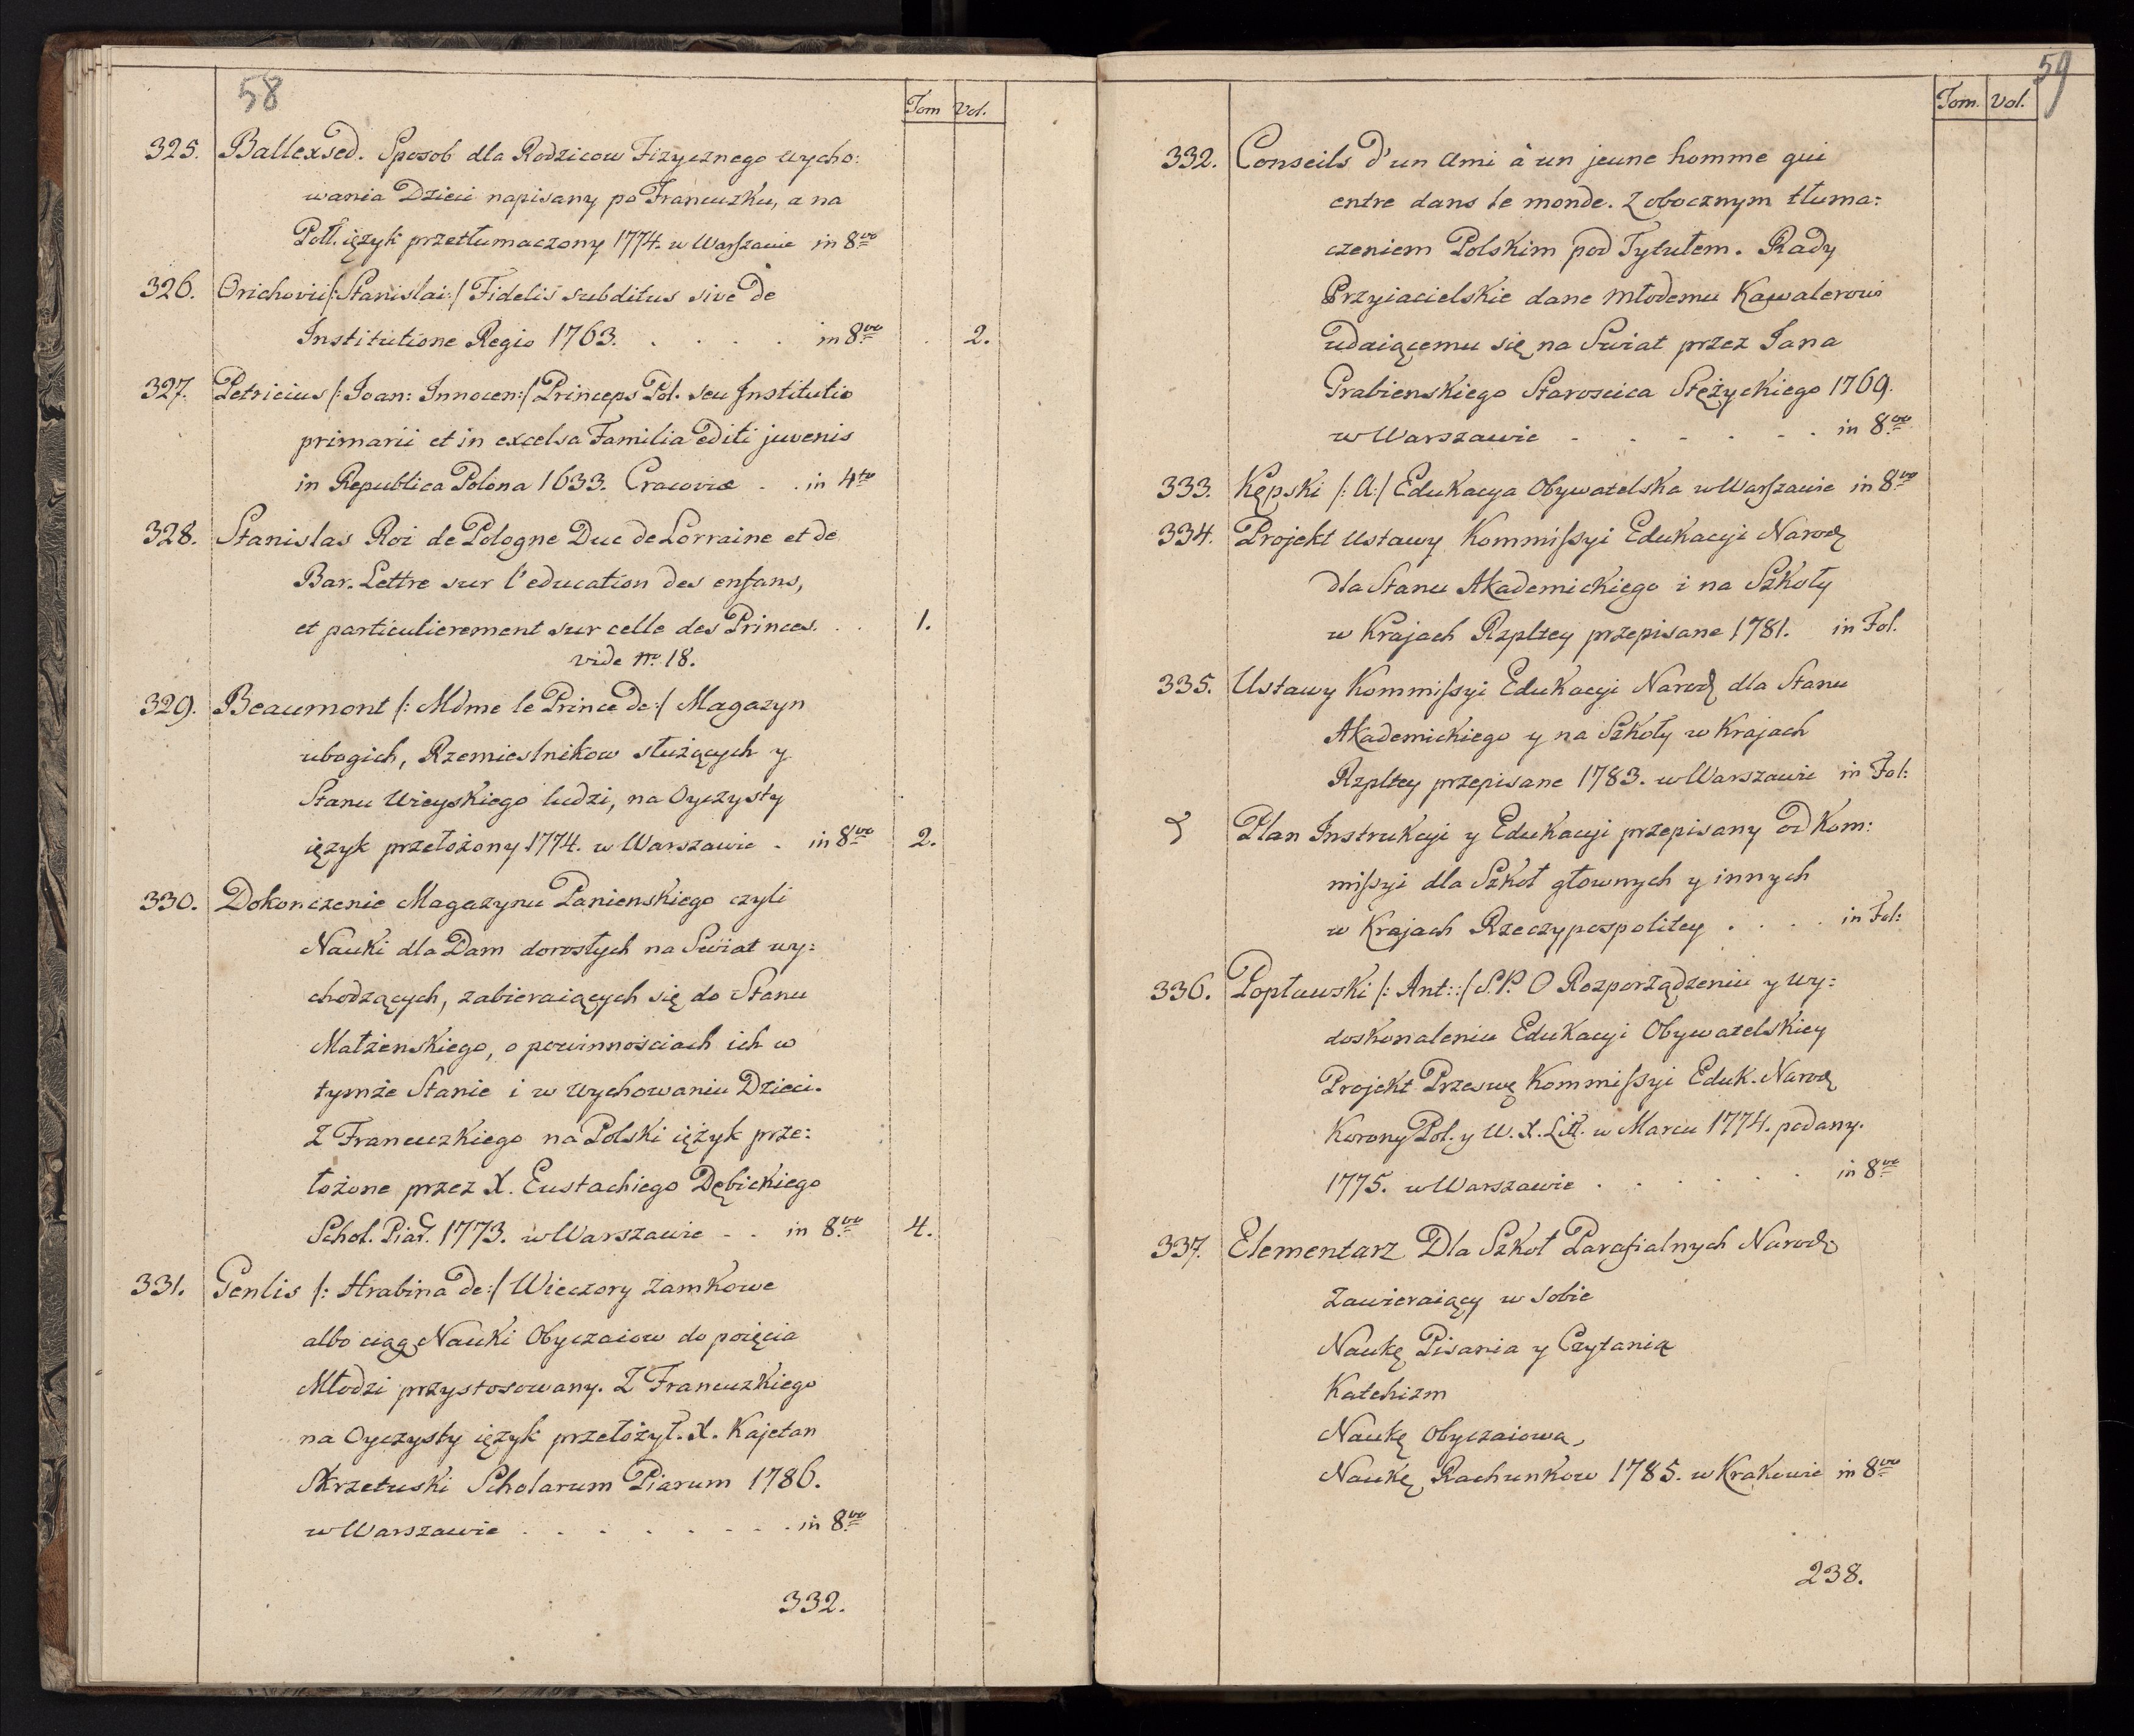 58
Tom Vol.
325. Ballexsed. Sposob dla Rodzicow Fizycznego wycho:
wania Dzieci napisany po Francuzku, a na
Poll. ięzyk przetłumaczony 1774. w Warszawie in 8vo
326. Orichovii /: Stanislai :/ Fidelis subditus sive de
Institutione Regio 1763. . . . . in 8vo . 2.
327. Petricius /: Ioan: Innocen: :/ Princeps Pol. seu Institutio
primarii et in excelsa Familia editi juvenis
in Republica Polona 1633. Cracoviæ . . in 4to
328. Stanislas Roi de Pologne Duc de Lorraine et de
Bar. Lettre sur l'education des enfans,
et particulierement sur celle des Princes. . . 1.
vide No. 18.
329. Beaumont /: Mdme le Prince de :/ Magazyn
ubogich, Rzemieslnikow służących y
Stanu Wieyskiego ludzi, na Oyczysty
ięzyk przełożony 1774. w Warszawie . in 8vo 2.
330. Dokonczenie Magazynu Panienskiego czyli
Nauki dla Dam dorosłych na Swiat wy:
chodzących, zabieraiących się do Stanu
Małżenskiego, o powinnościach ich w
tymże Stanie i w wychowaniu Dzieci.
Z Francuzkiego na Polski ięzyk prze:
łożone przez X. Eustachiego Dębickiego
Schol. Piar. 1773. w Warszawie . . in 8vo 4.
331. Genlis /: Hrabina de :/ Wieczory zamkowe
albo ciąg Nauki Obyczaiow do poięcia
Młodzi przystosowany. Z Francuzkiego
na Oyczysty ięzyk przełożył. X. Kajetan
Skrzetuski Scholarum Piarum 1786.
w Warszawie . . . . . . . . in 8vo
332.
59
Tom. Vol.
332. Conseils d'un Ami à un jeune homme qui
entre dans le monde. Z obocznym tłuma:
czeniem Polskim pod Tytułem. Rady
Przyiacielskie dane młodemu Kawalerowi
udaiącemu się na Swiat przez Jana
Grabienskiego Staroscica Stężyckiego 1769.
w Warszawie . . . . . . in 8vo
333. Kępski /: A :/ Edukacya Obywatelska w Warszawie in 8vo
334. Projekt Ustawy Kommissyi Edukacyi Narod
dla Stanu Akademickiego i na Szkoły
w Krajach Rzpltey przepisane 1781. in Fol.
335. Ustawy Kommissyi Edukacyi Narod dla Stanu
Akademickiego y na Szkoły w Krajach
Rzpltey przepisane 1783. w Warszawie in Fol:
Plan Instrukcyi y Edukacyi przepisany od Kom:
missyi dla Szkoł głownych y innych
w Krajach Rzeczypospolitey . . . . in Fol:
336. Popławski /: Ant: :/ S.P. O Rozporządzeniu y wy:
doskonaleniu Edukacyi Obywatelskiey
Projekt Przeswę Kommissyi Eduk. Narod
Korony Pol. y W. X. Litt. w Marcu 1774. podany.
1775. w Warszawie . . . . . . in 8vo
337. Elementarz Dla Szkoł Parafialnych Narod:
zawieraiący w sobie
Naukę Pisania y Czytania
Katehizm
Naukę Obyczaiową
Naukę Rachunkow 1785. w Krakowie in 8vo
238.